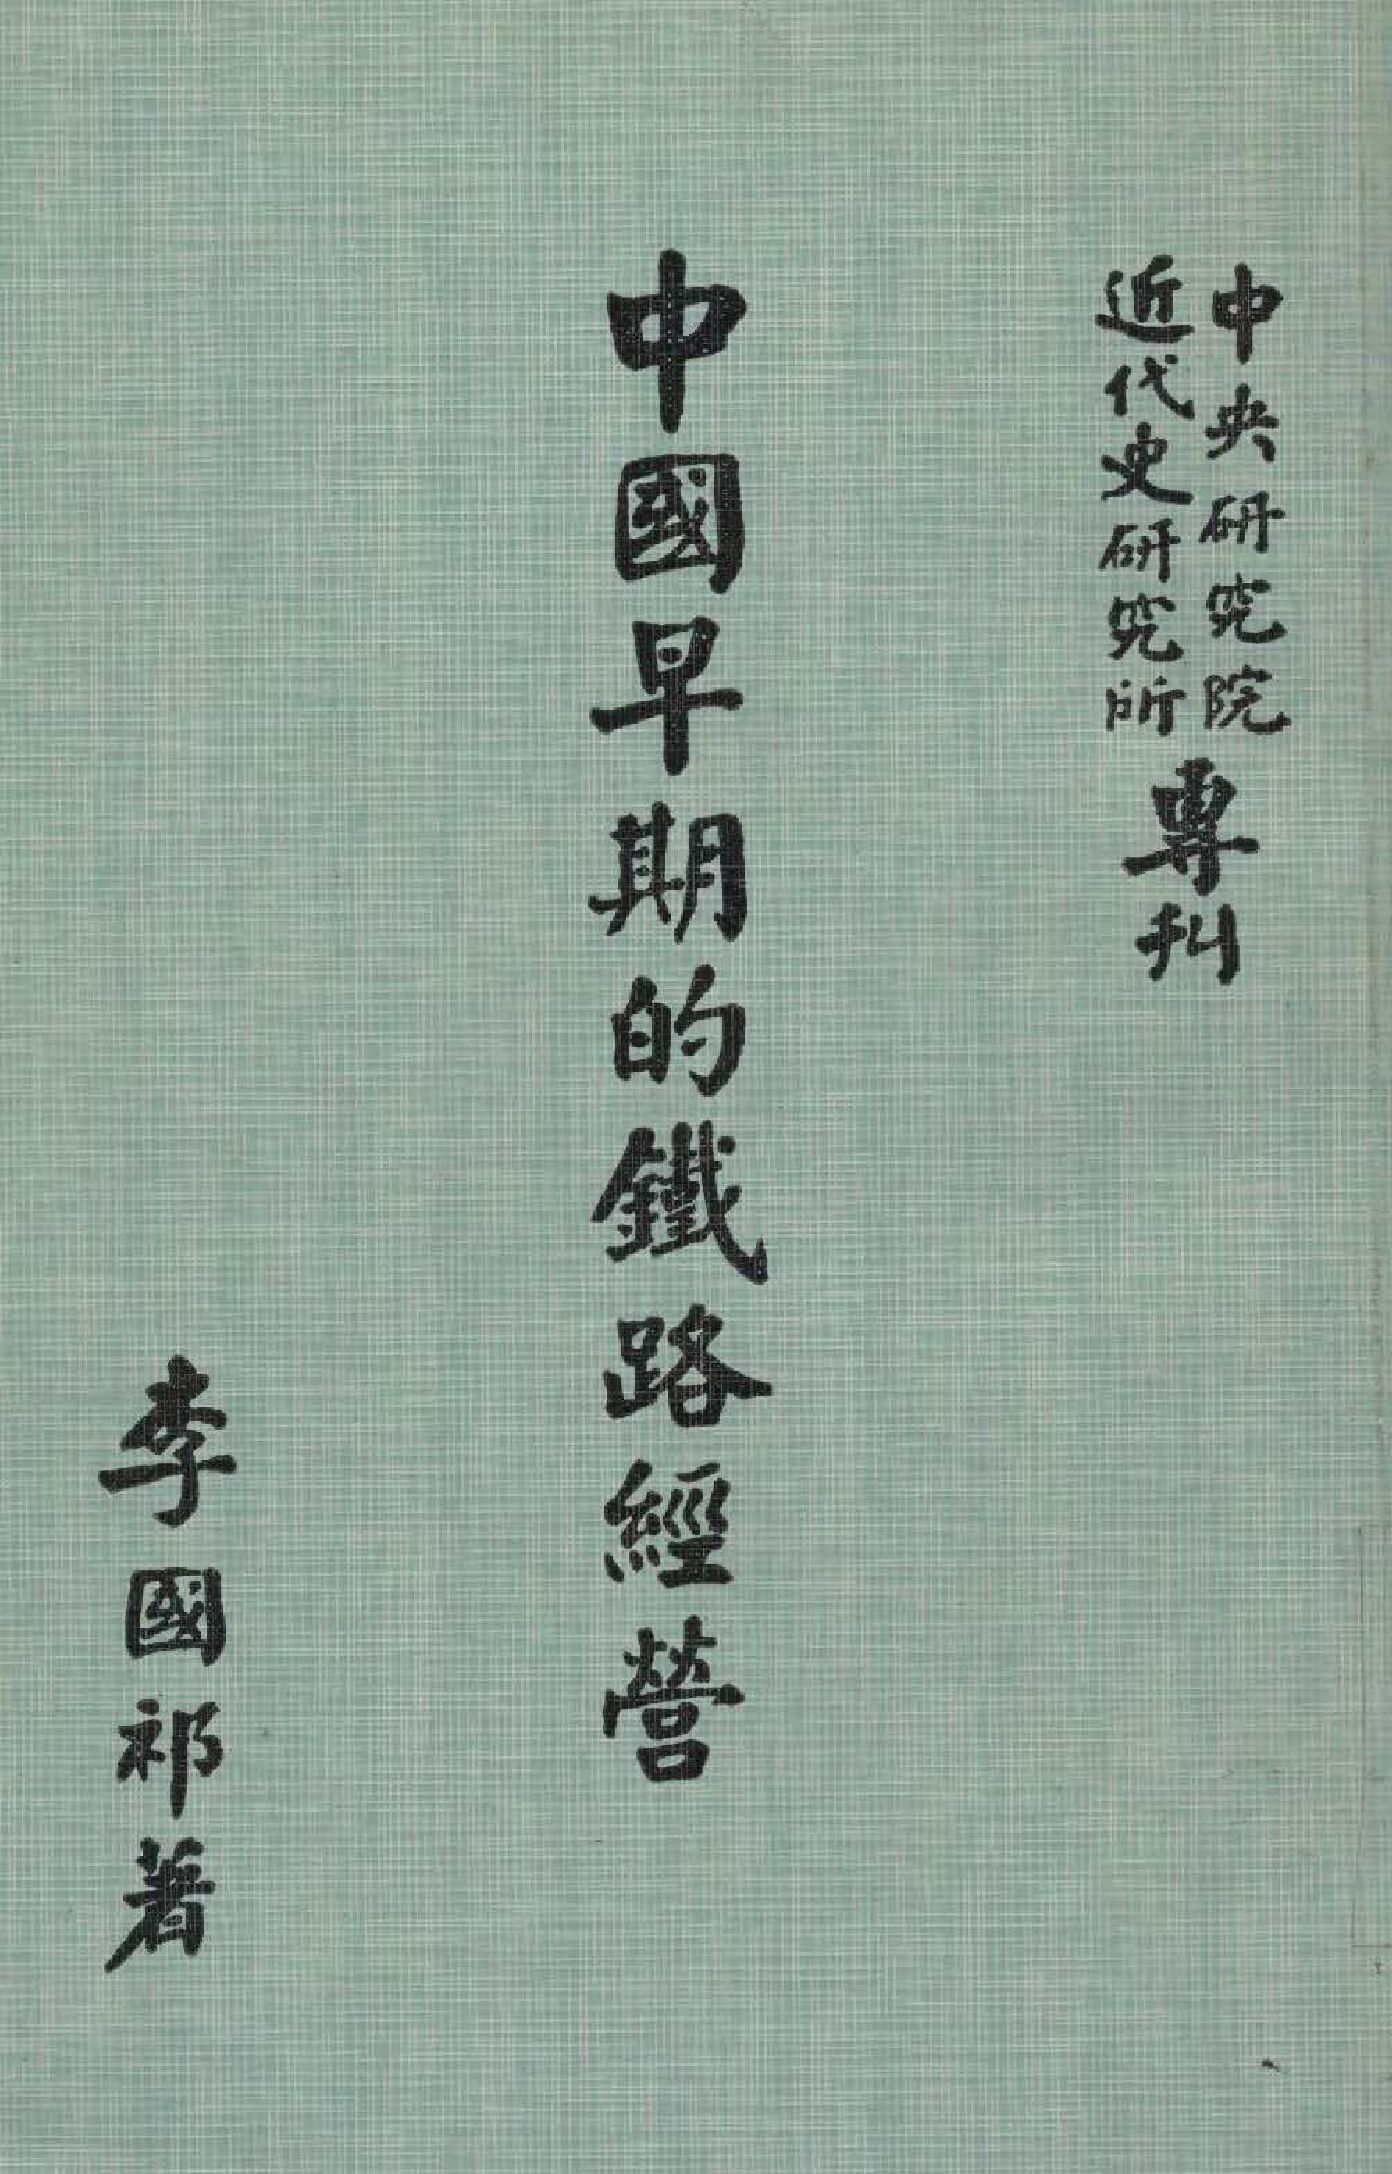 中央研究院
近代史研究所
專刊
中國早期的鐵路經營
李國祁著